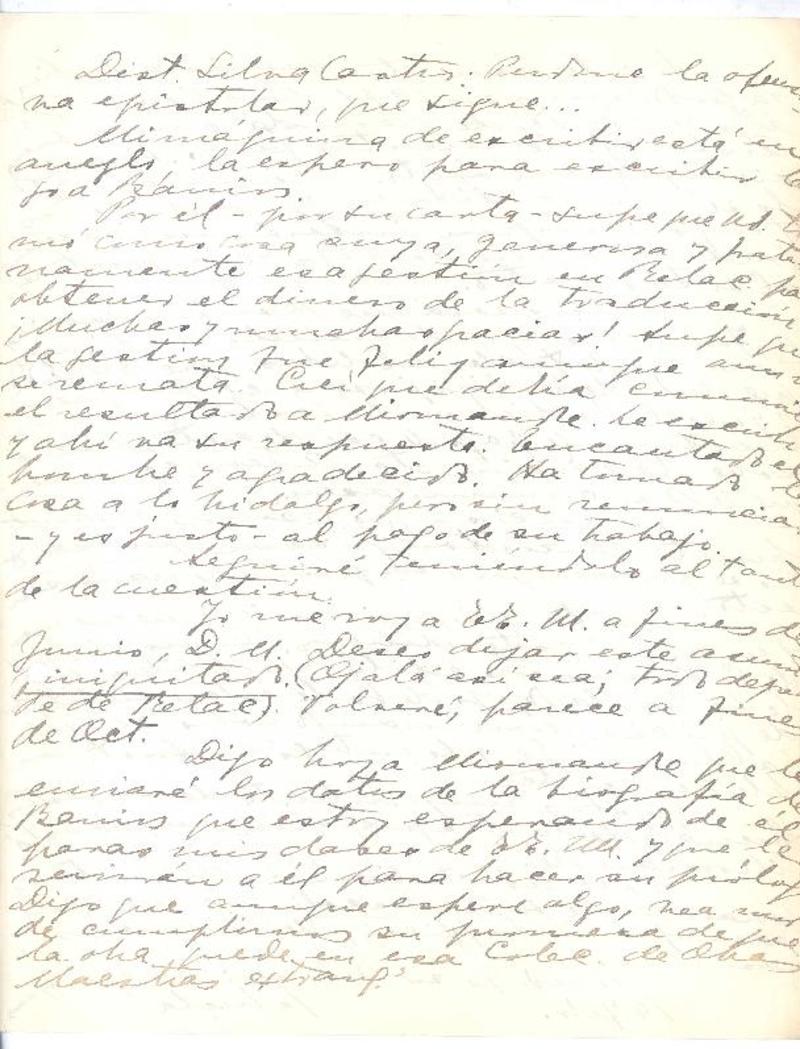 Dist. Silva Castro: Perdone la ofens
va epistolar, que sigue...
Mi máquina de escribir está en
arreglo, la espero para escribir
a Barrios
Por él - por su carta - supe que Ud. t
mó como cosa suya, generosa y
namente esa gestión en Relac. pa
obtener el dinero de la traducción
¡Muchas y muchas gracias! Supe qu
la gestión fue feliz aunque
se remata. Creí que debía comuni
el resultado a Miomandre. Le escribí
y ahí va su respuesta: encantado el
hombre y agradecido. Ha tomado la
cosa a lo hidalgo, pero sin renuncia.
- y es justo - al pago de su trabajo.
Seguiré teniéndolo al tant
de la cuestión.
Yo me voy a EE. UU. a fines de
Junio, D. M. Deseo dejar este asun
finiquitado. (Ojalá así sea; todo depen
de de Relac). Volveré, parece a fines
de Oct.
Digo hoy a Miomandre que le
enviaré los datos de la biografía de
Barrios que estoy esperando de él
para mis clases de EE. UU. y que le
servirán a él para hacer su prólog
Digo que aunque espere algo, vea
de cumplirnos su promesa de que
la obra quede en esa Colec. de Obras
Maestras extranj.